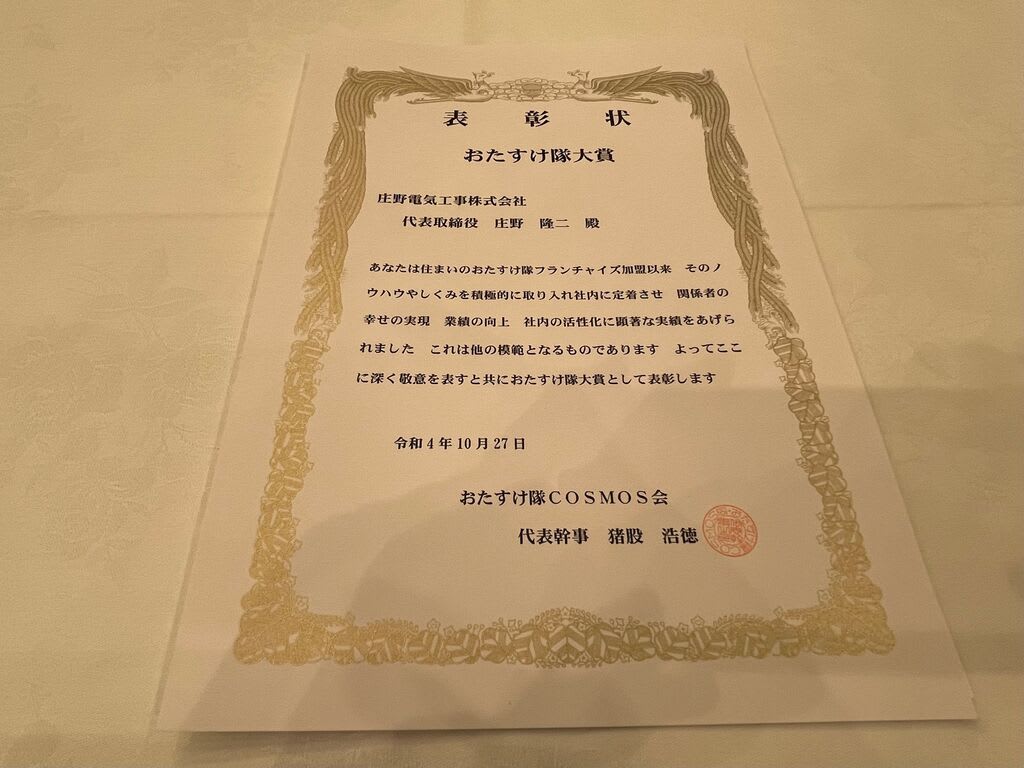 表彰状
おたすけ隊大賞
庄野電気工事株式会社
代表取締役 庄野 隆二 殿
あなたは住まいのおたすけ隊フランチャイズ加盟以来 そのノ
ウハウやしくみを積極的に取り入れ社内に定着させ 関係者の
幸せの実現 業績の向上 社内の活性化に顕著な実績をあげら
れました これは他の模範となるものであります よってここ
に深く敬意を表すと共におたすけ隊大賞として表彰します
令和4年10月27日
おたすけ隊COSMOS会
代表幹事 猪股 浩徳